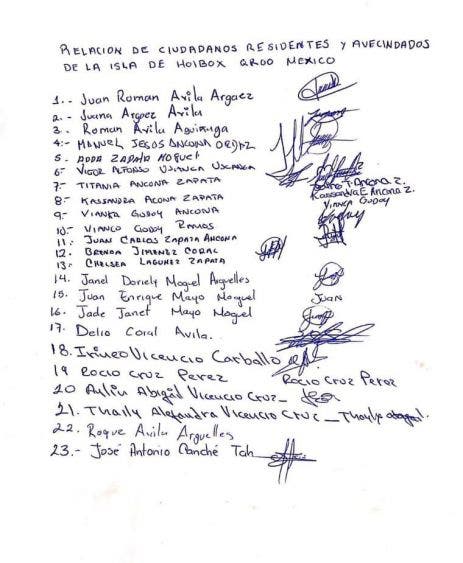 RELACION DE CIUDADANOS RESIDENTES Y AVECINDADOS
DE LA ISLA DE HOLBOX QROO MEXICO
1.- Juan Roman Avila Argaez
2.- Juana Argaez Avila
3. Roman Avila
4.- MANUEL JESOS ANCONA ORDAZ
5. ZAPATA MOGUEL
6- VICTOR ALFONSO USCANGA
7.- TITANIA ANCONA ZAPATA T. Ancona Z.
8.- KASSANDRA ACONA ZAPATA Kassandra E Ancona Z.
9.- VIANKA GODOY ANCONA VIANCA GODOY
10.- VIANCO GODOY RAMOS
11. JUAN CARLOS ZAPATA ANCONA
12. BRENDA JIMENEZ CORAL
13. CHELSEA LAGUNEZ ZAPATA
14. Janel Doriely Moguel Arguelles
15. Juan Enrique Mayo Moguel JUAN
16. Jade Janet Mayo Moguel
17. Delio Coral Avila.
18. Irineo Vicencio Carballo
19 Rocio Cruz Perez Rocio Cruz Perez
20 Aylin Abigail Vicencio Cruz_
21. Thaily Alejandra Vicencio Cruz_
22. Roque Avila Arguelles
23.- José Antonio Canché Tah